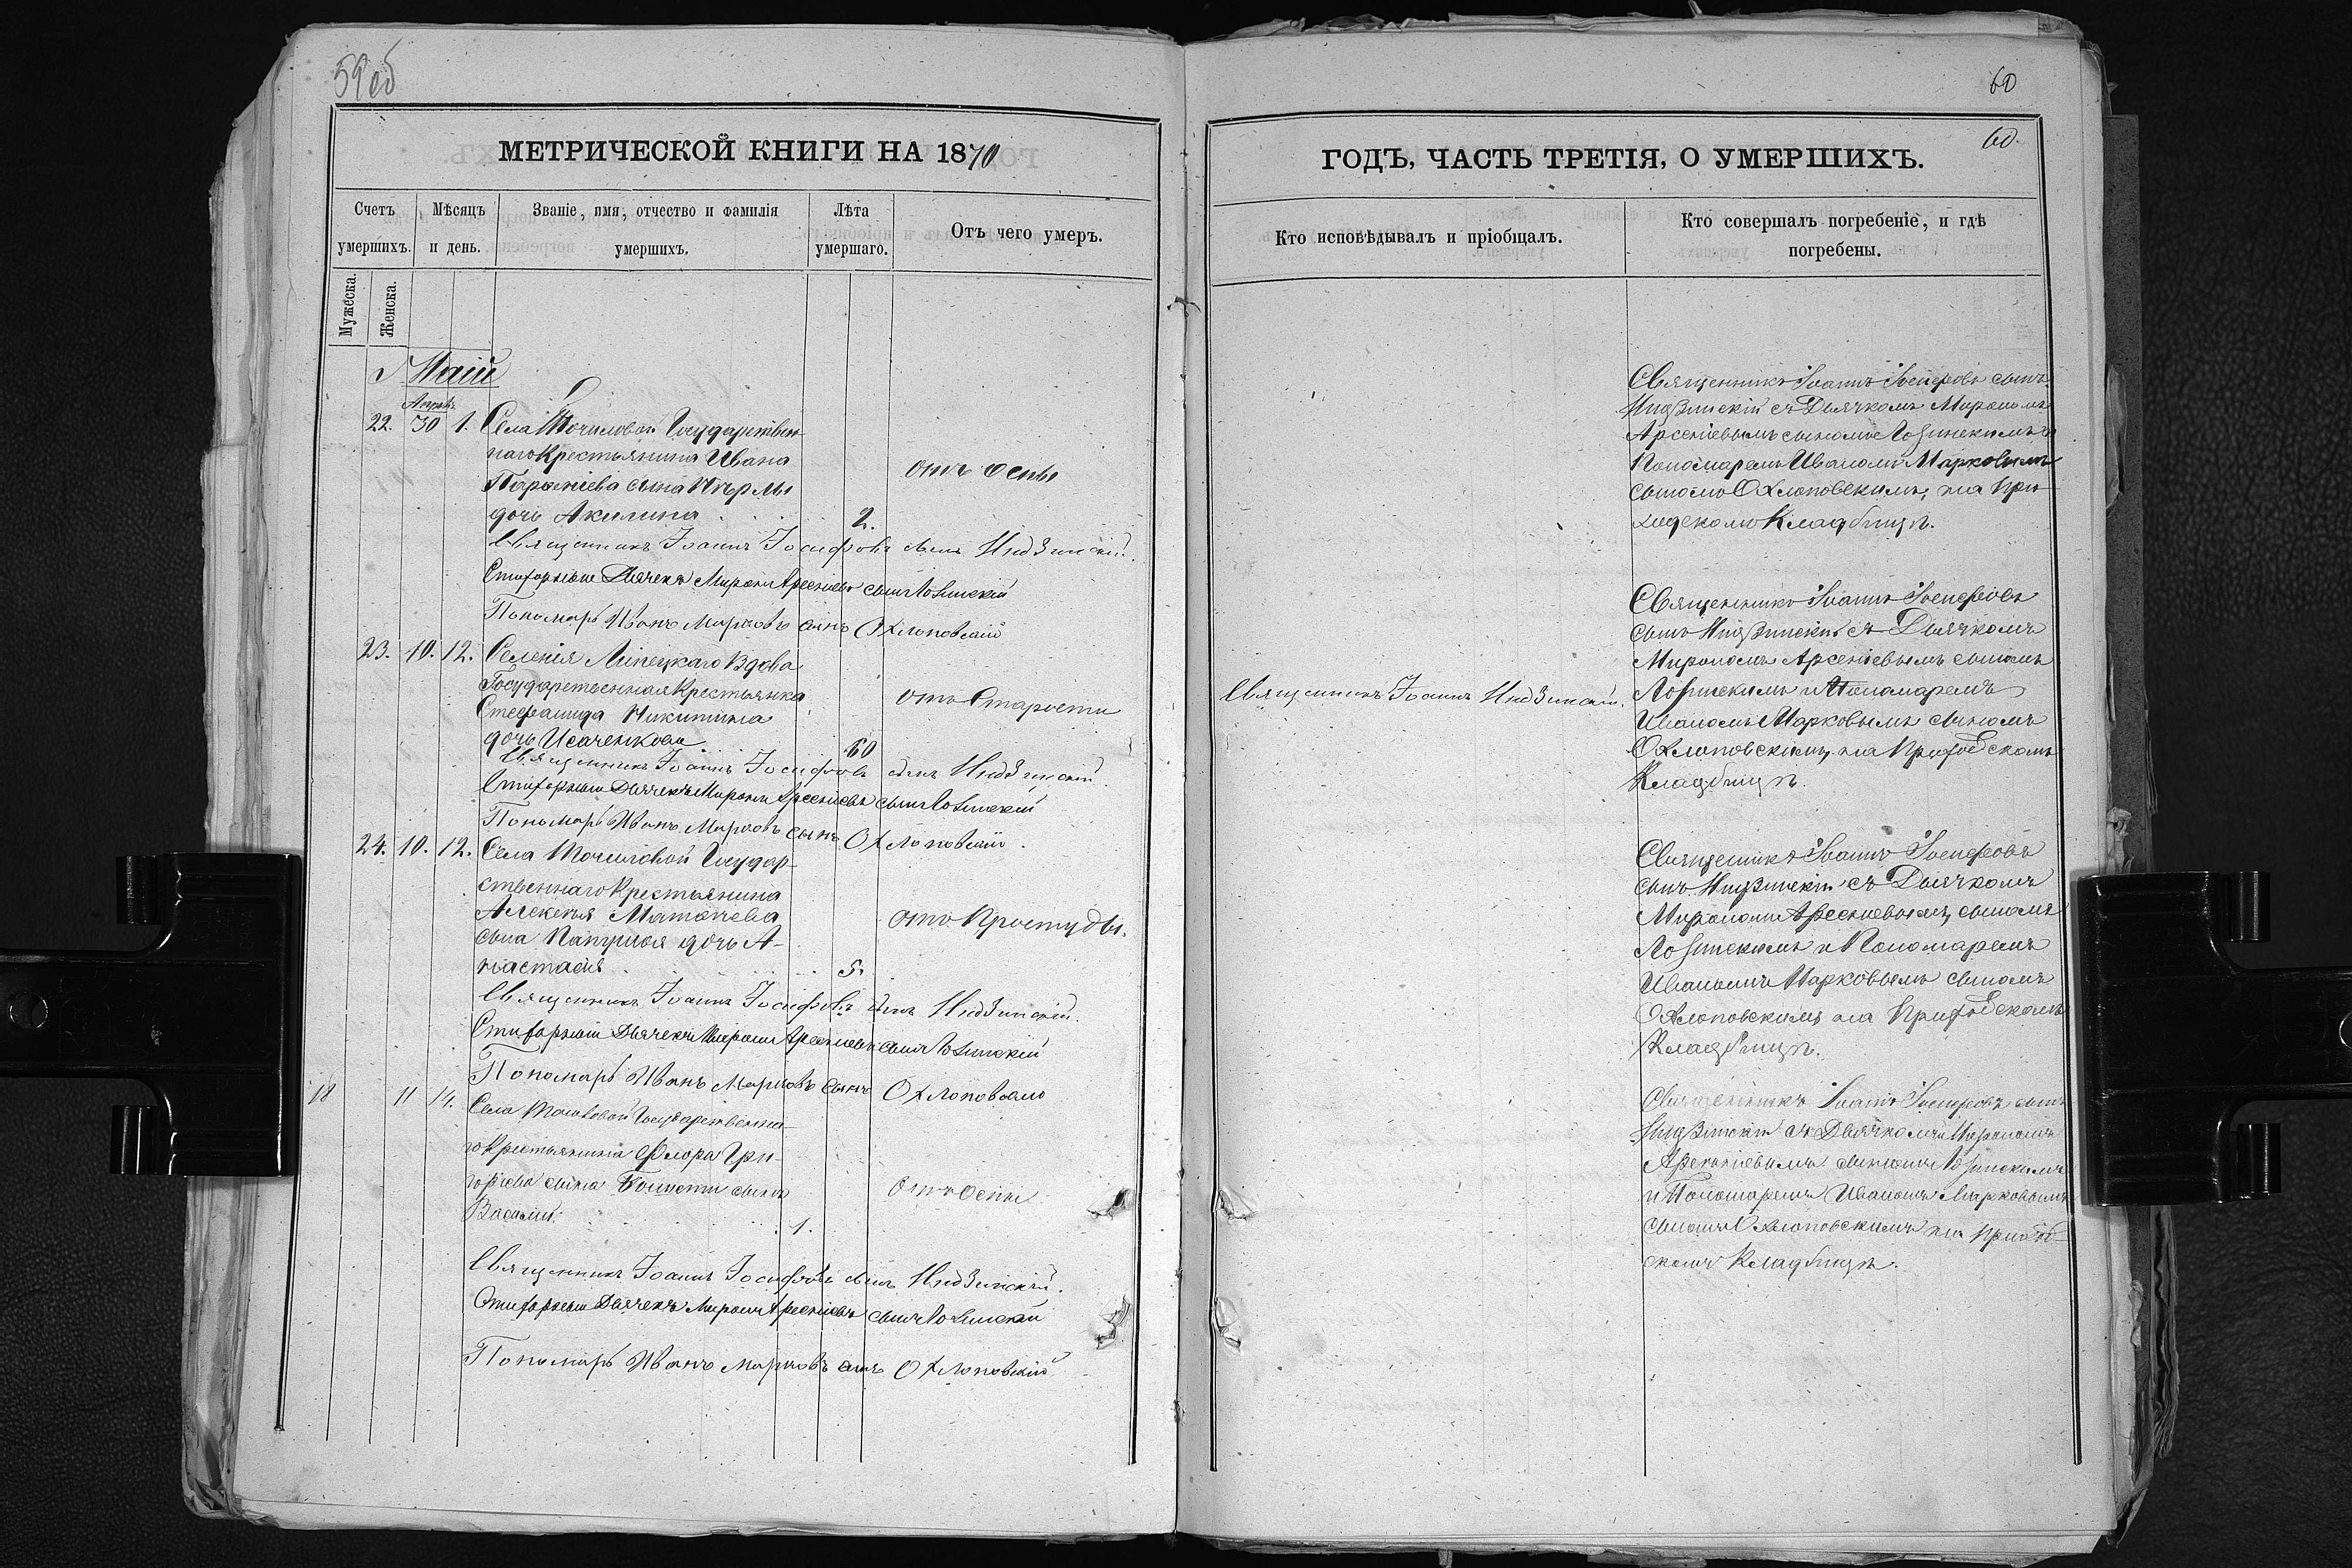 59 об
МЕТРИЧЕСКОЙ КНИГИ НА 1870
Счетъ умершихъ.
Мѣсяцъ и день.
Званіе, имя, отчество и фамилія умершихъ.
Лѣта умершаго.
Отъ чего умеръ.
Мужеска.
Женска.
Маій
Апрѣл.
22. 30 1. Села Точиловой Государствен-
наго Крестьянина Ивана
сына
дочь Акилина 2.
отъ оспы
Священникъ Іоаннъ Іосифовъ сынъ Нидзинскій.
Стихарный Дьячекъ Миронъ Арсеніевъ сынъ Лозинскій
Пономарь Иванъ Марковъ сынъ Охлоповскій
23. 10. 12. Селенія Липецкаго Вдова
Государственная Крестьянка
Стефанида Никитина
дочь Исаченкова 60
отъ Старости
Священникъ Іоаннъ Іосифовъ сынъ Нидзинскій
Стихарный Дьячекъ Миронъ Арсеніевъ сынъ Лозинскій
Пономарь Иванъ Марковъ сынъ Охлоповскій.
24. 10. 12. Села Точиловой Государ-
ственнаго Крестьянина
Алексѣя
сына дочь А-
настасія 5.
отъ Простуды.
Священникъ Іоаннъ Іосифовъ сынъ Нидзинскій.
Стихарный Дьячекъ Миронъ Арсеніевъ сынъ Лозинскій
Пономарь Иванъ Марковъ сынъ Охлоповскій
18 11 14. Села Точиловой Государственна-
го Крестьянина Флора Гри-
горьева сына сынъ
Василій. 1.
отъ Оспы
Священникъ Іоаннъ Іосифовъ сынъ Нидзинскій.
Стихарный Дьячекъ Миронъ Арсеніевъ сынъ Лозинскій
Пономарь Иванъ Марковъ сынъ Охлоповскій
60
60.
ГОДЪ, ЧАСТЬ ТРЕТІЯ, О УМЕРШИХЪ.
Кто исповѣдывалъ и пріобщалъ.
Кто совершалъ погребеніе, и гдѣ погребены.
Священникъ Іоаннъ Іосифовъ сынъ
Нидзинскій съ Дьячкомъ Мирономъ
Арсеніевымъ сыномъ Лозинскимъ и
Пономаремъ Иваномъ Марковымъ
сыномъ Охлоповскимъ, на При-
ходскомъ Кладбищѣ.
Священникъ Іоаннъ Нидзинскій.
Священникъ Іоаннъ Іосифовъ
сынъ Нидзинскій съ Дьячкомъ
Мирономъ Арсеніевымъ сыномъ
Лозинскимъ и Пономаремъ
Иваномъ Марковымъ сыномъ
Охлоповскимъ, на Приходскомъ
Кладбищѣ.
Священникъ Іоаннъ Іосифовъ
сынъ Нидзинскій съ Дьячкомъ
Мирономъ Арсеніевымъ, сыномъ
Лозинскимъ и Пономаремъ
Иваномъ Марковымъ сыномъ
Охлоповскимъ на Приходскомъ
Кладбищѣ.
Священникъ Іоаннъ Іосифовъ сынъ
Нидзинскій съ Дьячкомъ Мирономъ
Арсеніевымъ сыномъ Лозинскимъ
и Пономаремъ Иваномъ Марковымъ
сыномъ Охлоповскимъ на Приход-
скомъ Кладбищѣ.